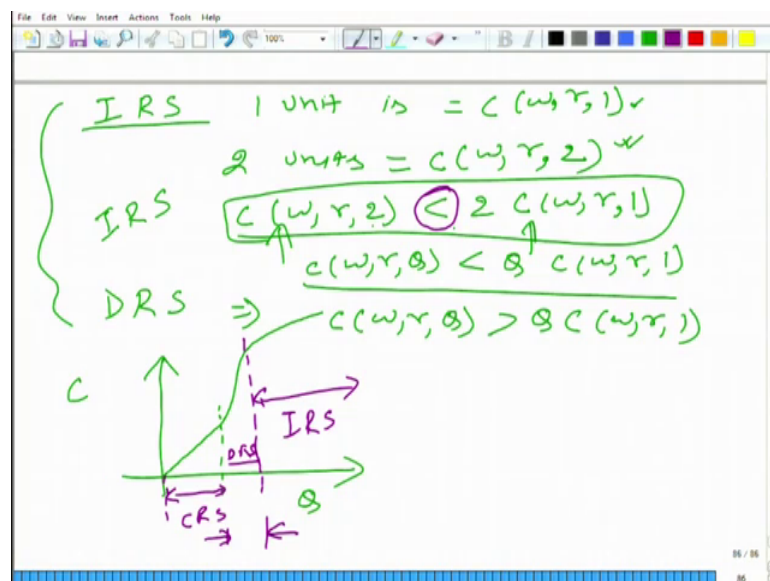 File Edit View Insert Actions Tools Help
100%
B I
IRS 1 unit is = C(w,r,1)
2 units = C(w,r,2)
IRS C(w,r,2) < 2 C(w,r,1)
C(w,r,Q) < Q C(w,r,1)
DRS ⇒ C(w,r,Q) > Q C(w,r,1)
C
IRS
DRS
Q
CRS
86 / 86
86